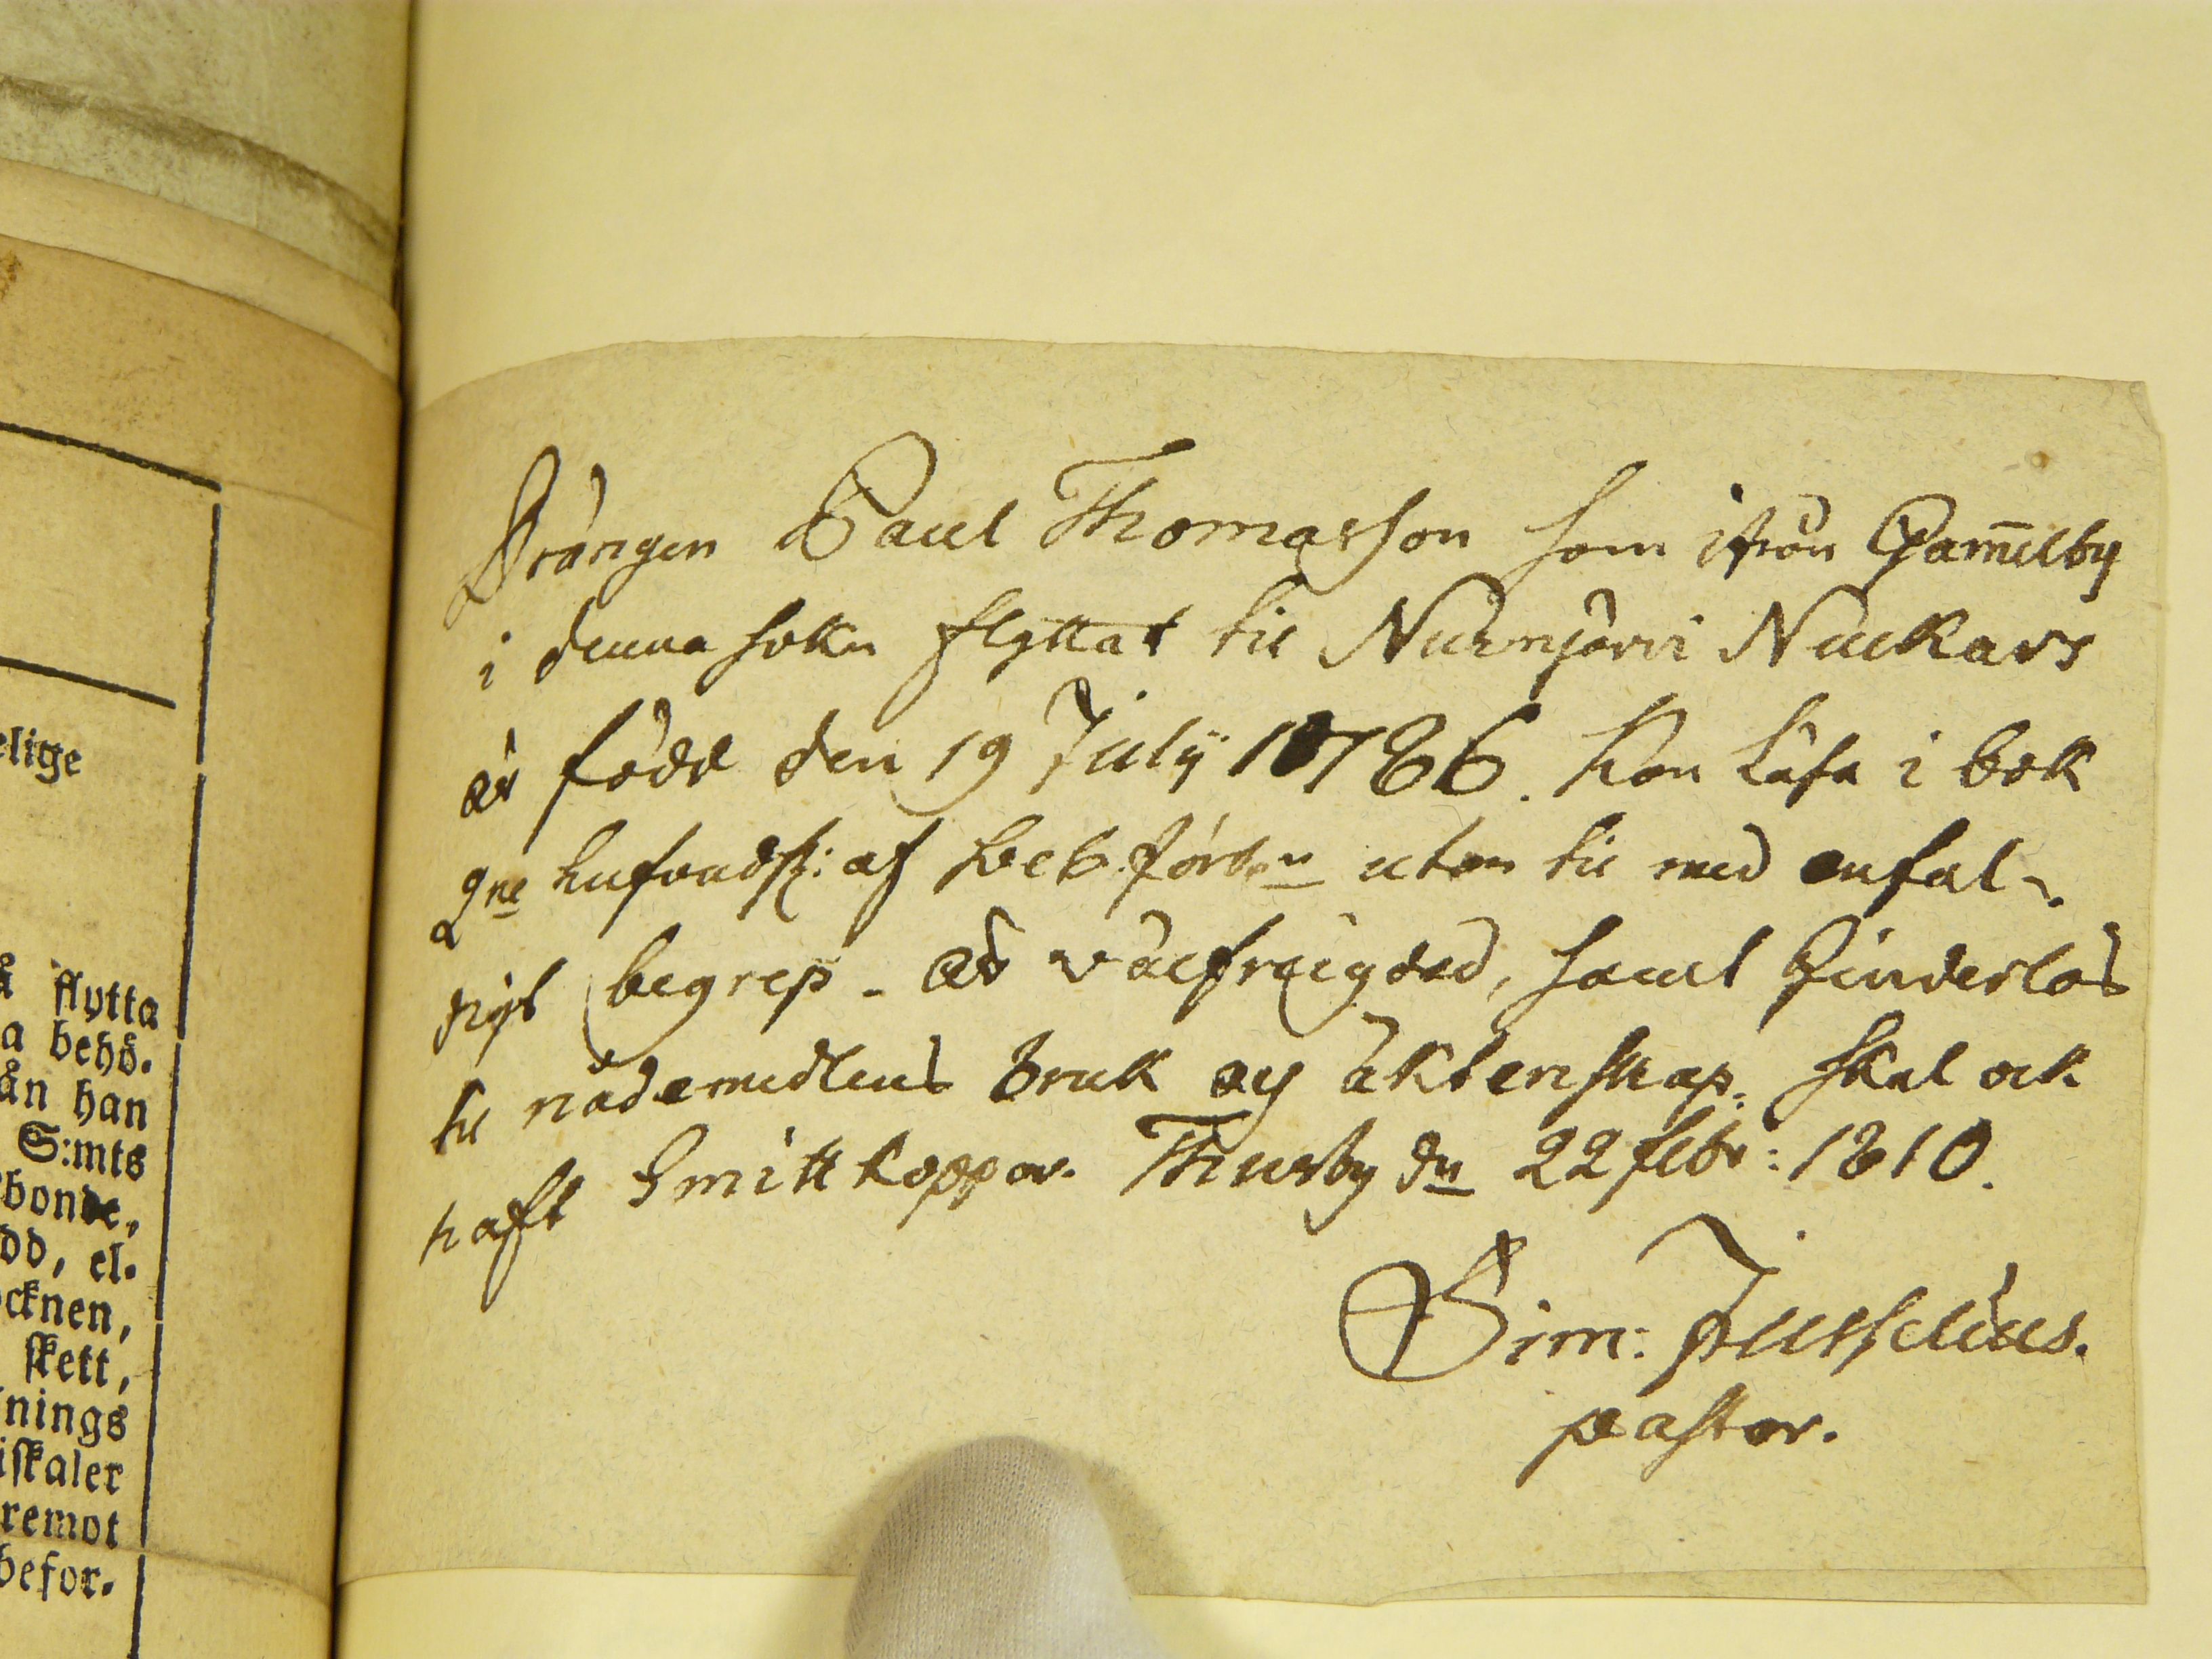 elige
å flytta
a behö.
ån han
S:mts
bonde,
dd, el.
ocknen,
skett,
nings
iskaler
remot
befor.
Drängen Paul Thomasson som ifrån Gam̄elby
i denna sokn flyttat til Nurmjärvi Nuckars
är född den 19 Julij 1786. Kan läsa i bok
af uton til med enfal-
digt begrep. är välfreigdad, samt hinderlös
til nådemedlens bruk og äktenskap. Skal ock
haft Smittkoppor. Thusby dn 22 febr: 1810.
Sim: Jusselius.
pastor.